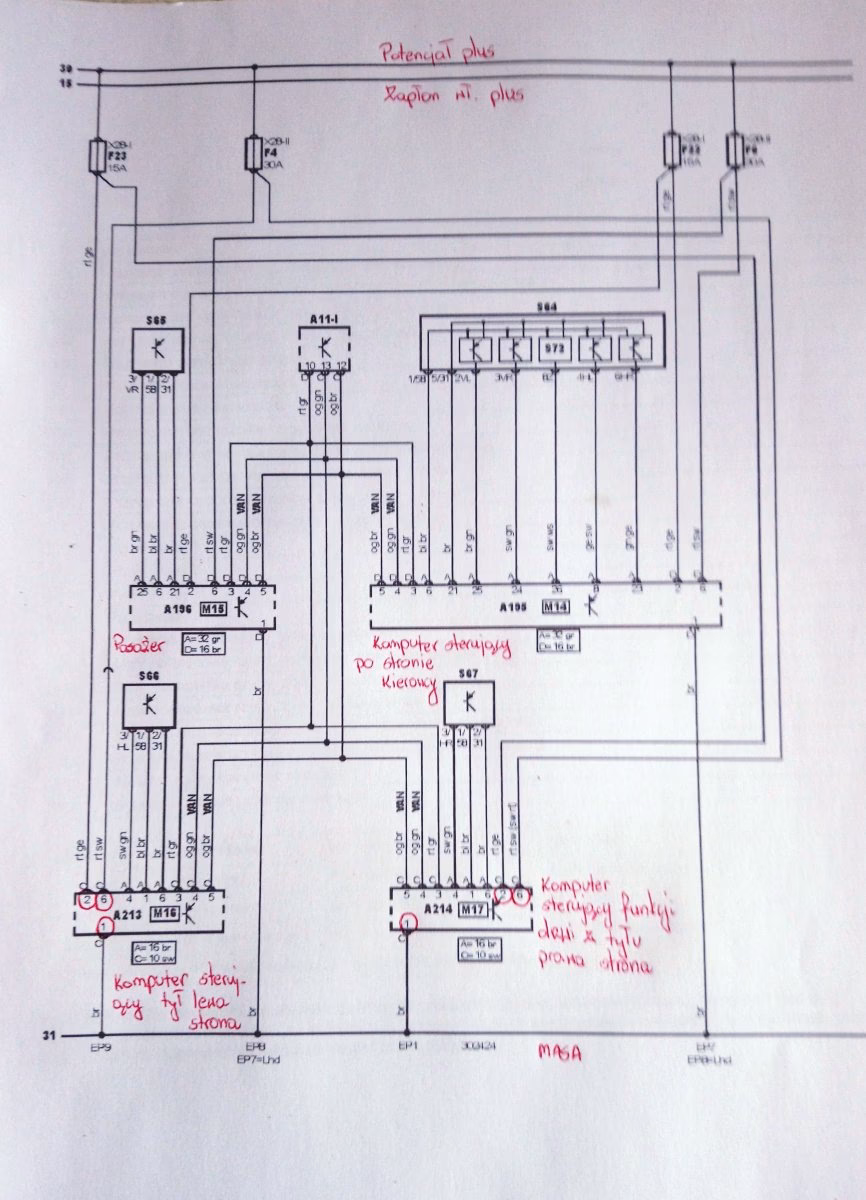 Potencjał plus
30
15
Zapłon wł. plus
X2B-I
F23
15A
X2B-II
F4
30A
15A
30A
rt ge
rt ge
rt sw
S65
A11-I
S64
S73
3/ 1/ 2/
VR 58 31
10 13 12
D C C
1/58 5/31 2VL 3VR 4HL
rt gr
og gn
og br
VAN VAN VAN VAN
br gn
bl br
br
rt ge
rt sw
rt gr
og gn
og br
og br
og gn
rt gr
bl br
br
br gn
sw gn
sw ws
ge sw
gn ge
rt ge
rt sw
25 6 21 2 6 3 4 5
5 4 3 6 21 25
A196 M15
A195 M14
1
A= 32 gr
D= 16 br
A= 32 gr
D= 16 br
Pasażer
Komputer sterujący
po stronie
kierowcy
S66
S67
br
br
3/ 1/ 2/
HL 58 31
3/ 1/ 2/
HR 58 31
VAN VAN VAN VAN
rt ge
rt sw
sw gn
bl br
br
rt gr
og gn
og br
og br
og gn
rt gr
sw gn
bl br
br
rt ge
rt sw (sw rt)
C C A A A C C C
2 6 4 1 6 3 4 5
C C C A A A C C
5 4 3 4 1 6 2 6
A213 M16
A214 M17
1
1
C
C
A= 16 br
C= 10 sw
A= 16 br
C= 10 sw
Komputer
sterujący funkcji
drzwi z tyłu
prawa strona
Komputer steruj-
ący tył lewa
strona
br
br
br
br
31
EP9
EP8
EP7=Lhd
EP1
303424
MASA
EP7
EP8=Lhd